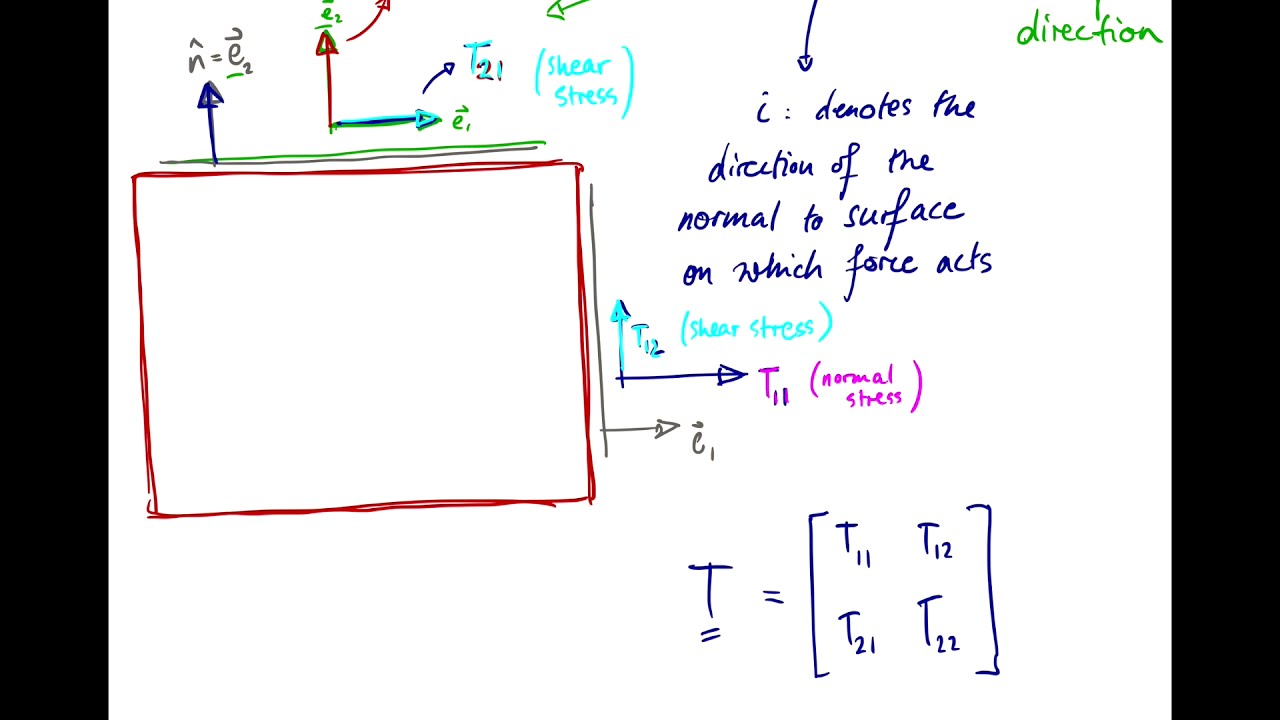 e⃗₂
direction
n̂ = e⃗₂
T₂₁ (shear
stress)
e⃗₁
i : denotes the
direction of the
normal to surface
on which force acts
T₁₂ (shear stress)
T₁₁ (normal
stress)
e⃗₁
T = [ T₁₁ T₁₂
T₂₁ T₂₂ ]